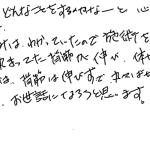 どんなことをするのかなーと 心
みは、わかっていたので 施術を
まってた背筋が伸び、体
は、背筋は伸びずで、れば
お世話になろうと思います。